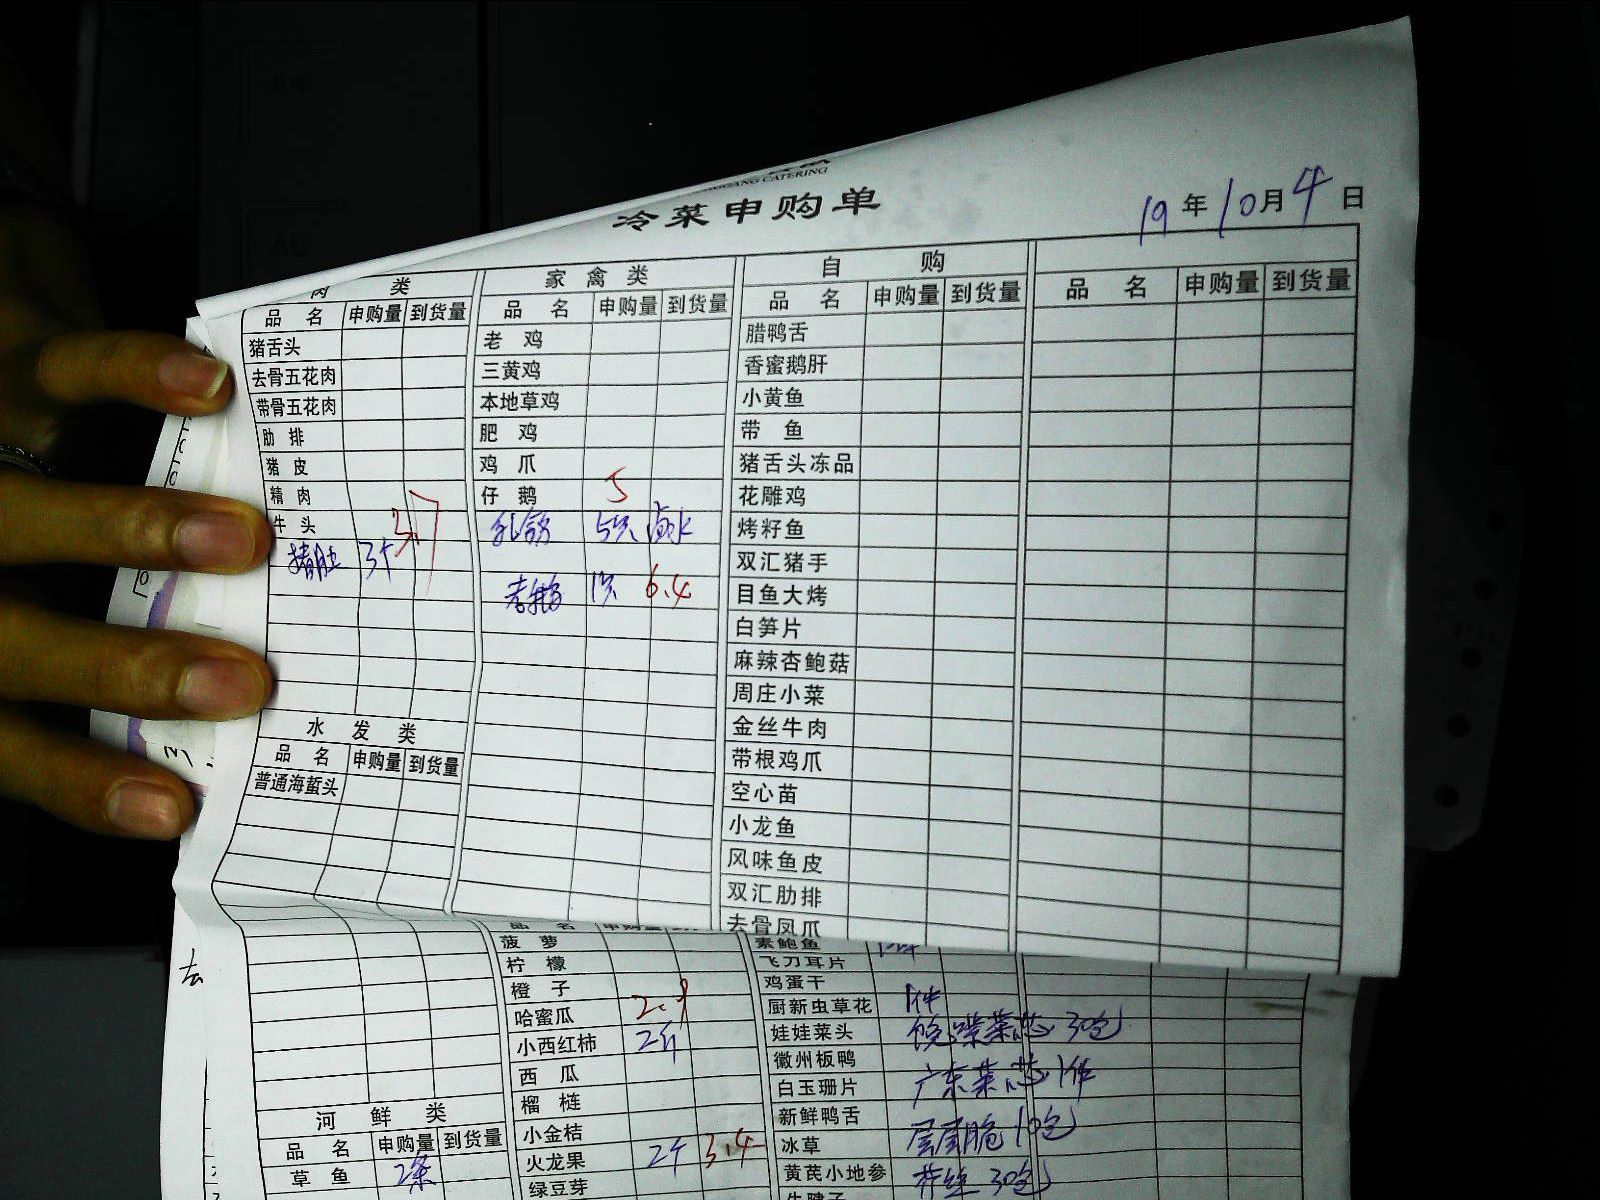 CATERING
冷菜申购单
19年10月4日
肉类
品名 申购量 到货量
猪舌头
去骨五花肉
带骨五花肉
肋排
猪皮
精肉
牛头
3个
水发类
品名 申购量 到货量
普通海蜇头
家禽类
品名 申购量 到货量
老鸡
三黄鸡
本地草鸡
肥鸡
鸡爪
仔鹅 5
乳鸽 5只 卤水
老鹅 1只 6.4
自购
品名 申购量 到货量
腊鸭舌
香蜜鹅肝
小黄鱼
带鱼
猪舌头冻品
花雕鸡
烤籽鱼
双汇猪手
目鱼大烤
白笋片
麻辣杏鲍菇
周庄小菜
金丝牛肉
带根鸡爪
空心苗
小龙鱼
风味鱼皮
双汇肋排
去骨凤爪
品名 申购量 到货量
河鲜类
品名 申购量 到货量
草鱼 2条
菠萝
柠檬
橙子
哈蜜瓜
小西红柿 2斤
西瓜
榴梿
小金桔
火龙果 2个 3.4
绿豆芽
素鲍鱼
飞刀耳片
鸡蛋干
厨新虫草花 1件
娃娃菜头
菜芯 30包
徽州板鸭
白玉珊片 广东菜芯 1件
新鲜鸭舌
冰草 层层脆 10包
黄芪小地参 30包
牛腱子
去